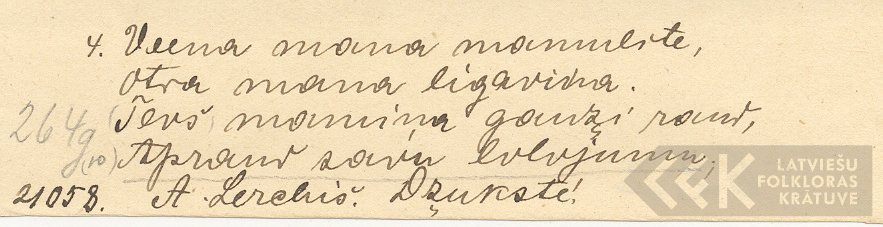 4. Veena mana mamulite,
Otra mana ligaviņa.
Tevs mamiņa gauzi raud,
264g (10) Apraud savu lolojumu,
21058. A. Lerchis. Dzukstē.
LATVIEŠU
FOLKLORAS
KRĀTUVE